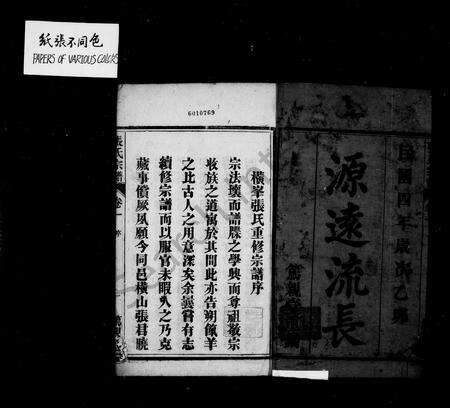 紙張不同色
PAPERS OF VARIOUS COLORS
6010769
民國四年歲次乙卯
源遠流長
橫峯張氏重修宗譜序
宗法壞而譜牒之學興而尊祖敬宗
收族之道寓於其間此亦告朔餼羊
之比古人之用意深矣余曩嘗有志
續修宗譜而以服官未暇久之乃克
蕆事償厥夙願今同邑橫山張君曉
張氏宗譜 卷一 序